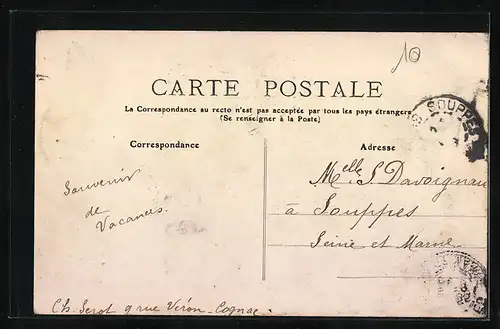 10
CARTE POSTALE
La Correspondance au recto n'est pas acceptée par tous les pays étrangers
(Se renseigner à la Poste)
SOUPPES
Correspondance
Adresse
Souvenir
de
Vacances
Melle S. Davoignau
à Souppes
Seine et Marne
Ch. Serot 9 rue Véron - Cognac